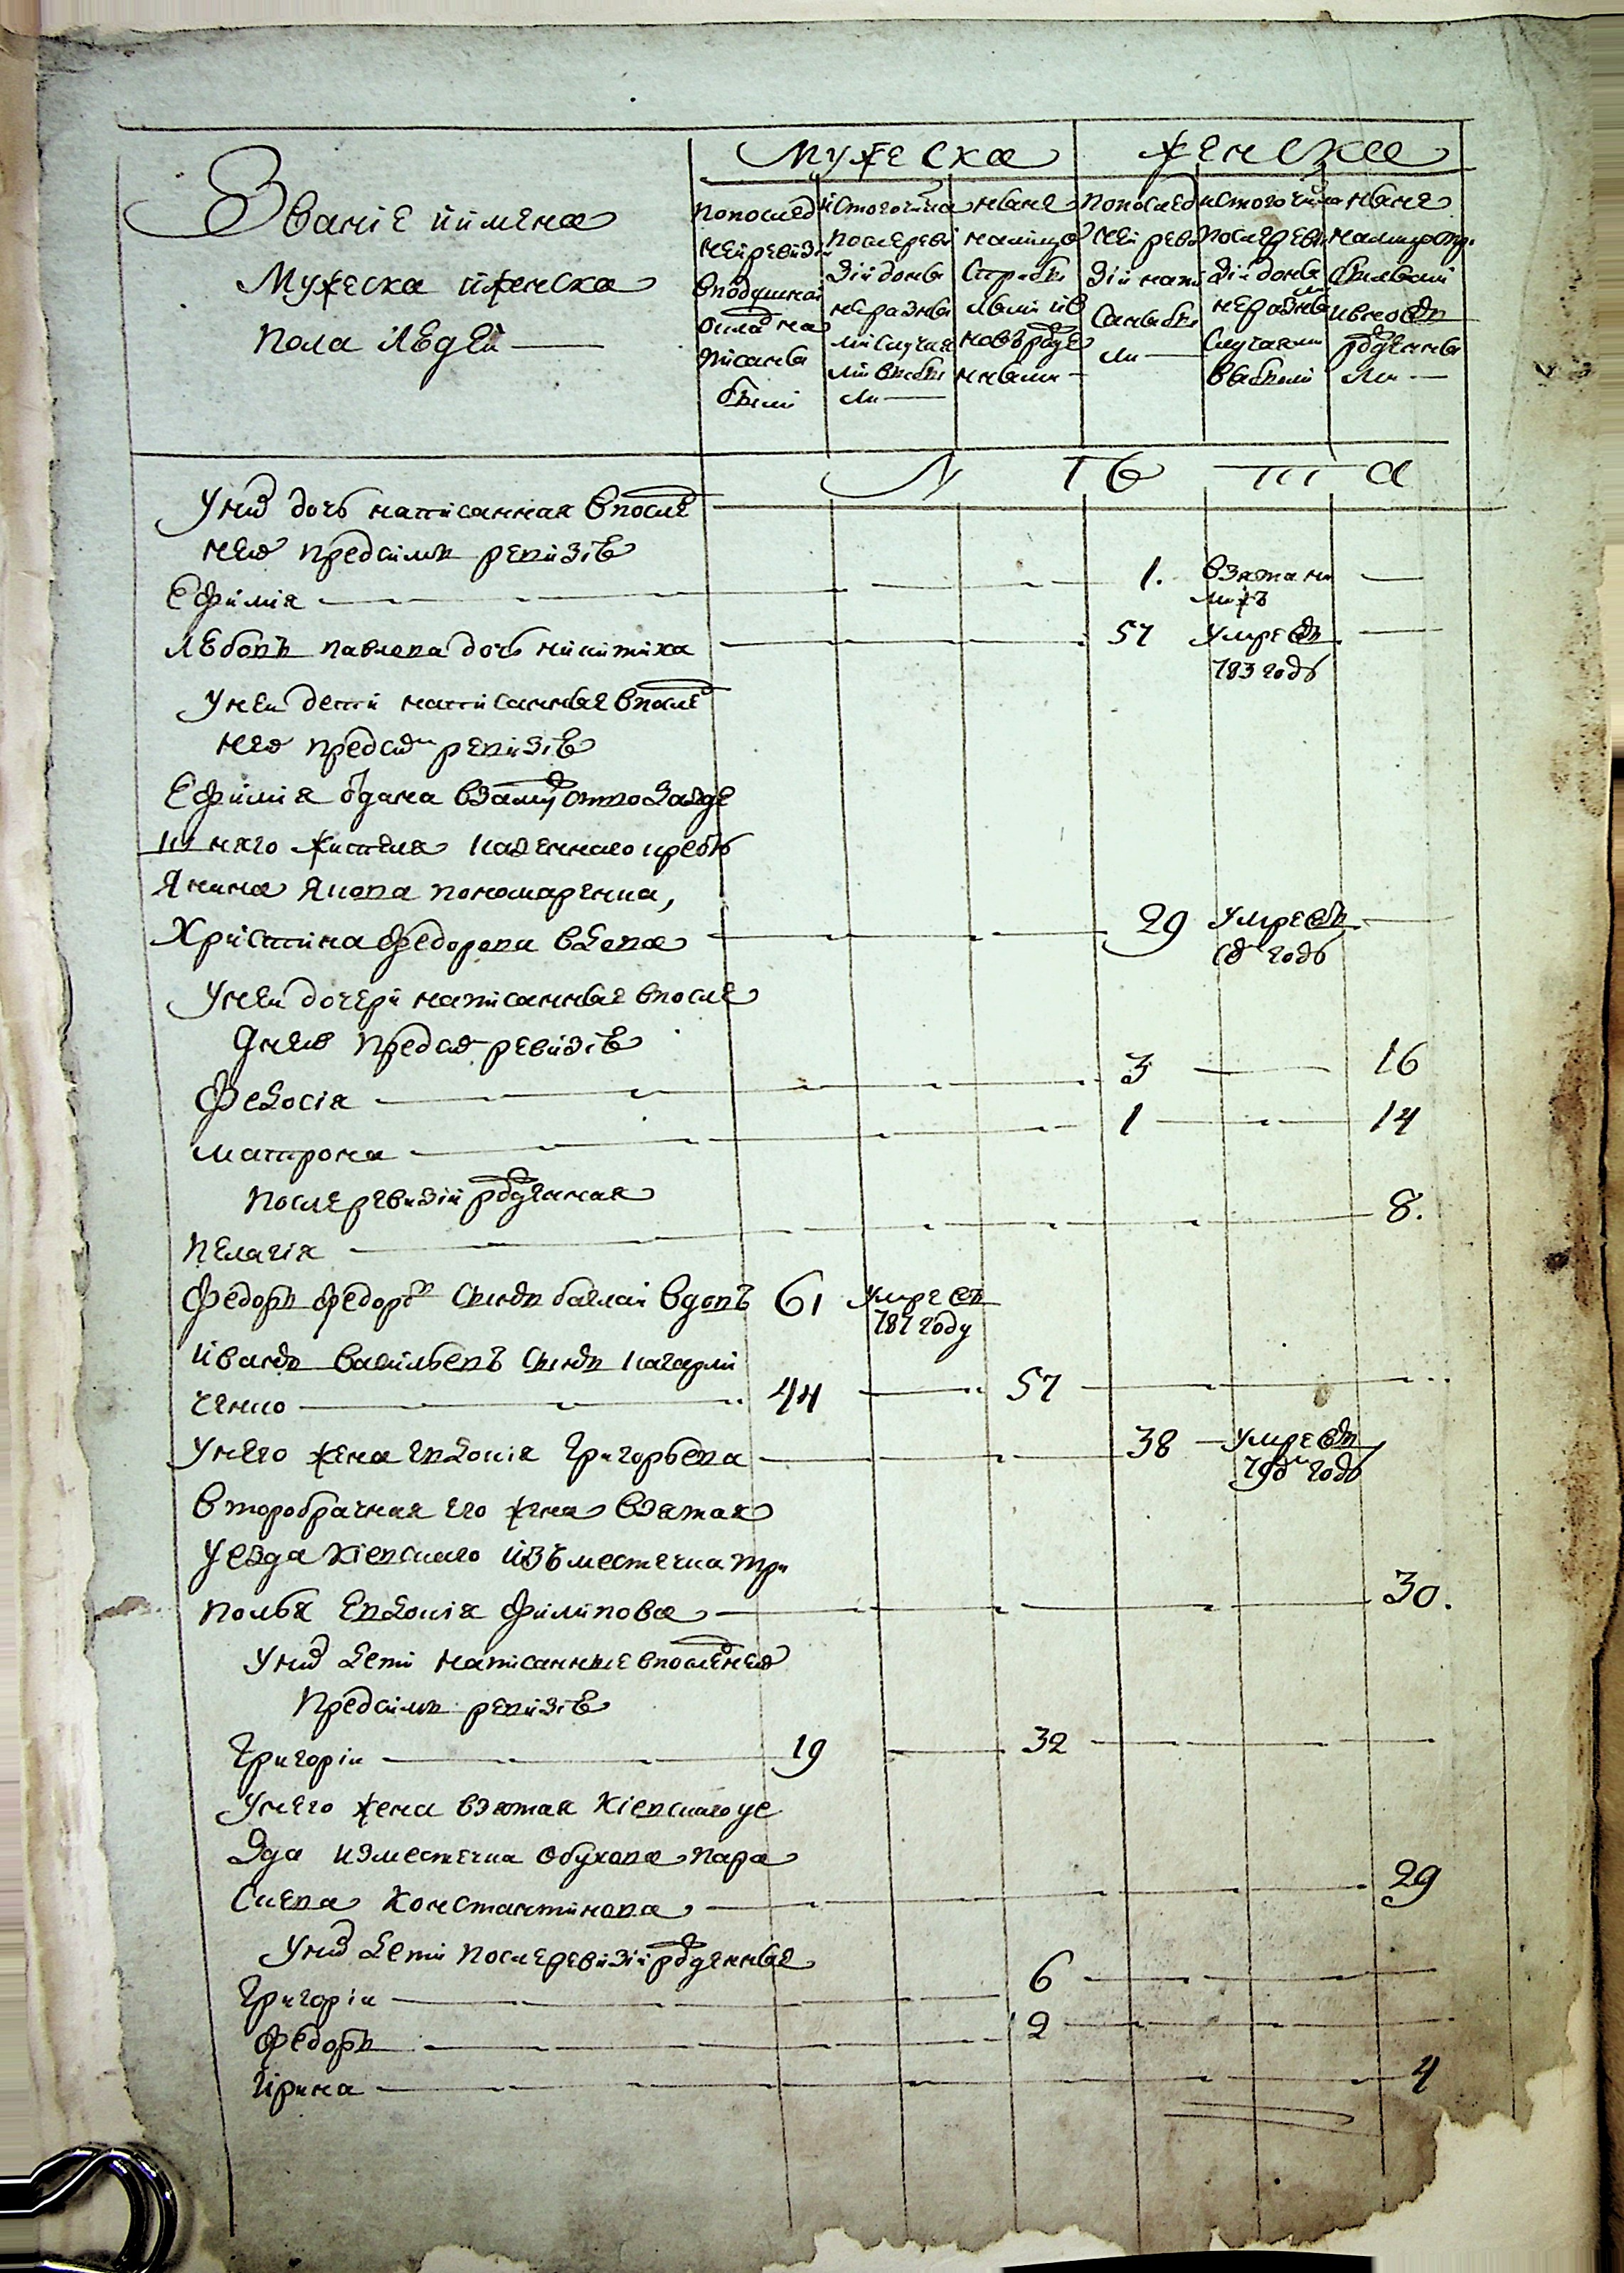 Мужеска Женска
Званіе и имена
Мужеска и женска
пола людей
попослед
ней ревизіи
вподушной
окладъ на
писаны
были
ис того числа
после реви
зіи до ны
не разны
ми случая
ми выбы
ли
ныне
на лицо
старыхъ
новорожде
нными
попослед
ней реви
зіи напи
саны бы
ли
ис того числа
после реви
зіи до ны
не разными
случаями
выбыли
ныне
на лицо
рожденны
ми
лѣта
У ней дочь написанная в после
ней предъ симъ ревизіе
Ефимія 1. взята на
мужъ
Любовъ павлова дочь никитиха 57 умре въ
783 годъ
У неи дети написанные в после
ней предъ симъ ревизіе
Ефимія отдана взамужство зде
шнаго жителя казеннаго
Якима Якова пономаренка,
Христина федорова вдова 29 умре въ
годъ
У неи дочери написанные в после
дней предъ симъ ревизіе
Федосія 3 16
матрона 1 14
После ревизіи рожденная
пелагія 8.
Федоръ федоровъ сынъ белай вдовъ 61 умре въ
787 году
Иванъ васильевъ сынъ кагарли
ченко 44 57
У него жена евдокія григорьева 38 умре въ
годъ
второбрачная его жена взятая
уезда кіевскаго изъ местечка три
полья евдокія филипова 30.
У ней дети написанные в последнея
предъ симъ ревизіе
григоріи 19 32
У него жена взятая кіевскаго уе
зда из местечка обухова пара
скева константинова 29
У ней дети после ревизіи рожденные
григоріи 6
федоръ 2
ирина 4